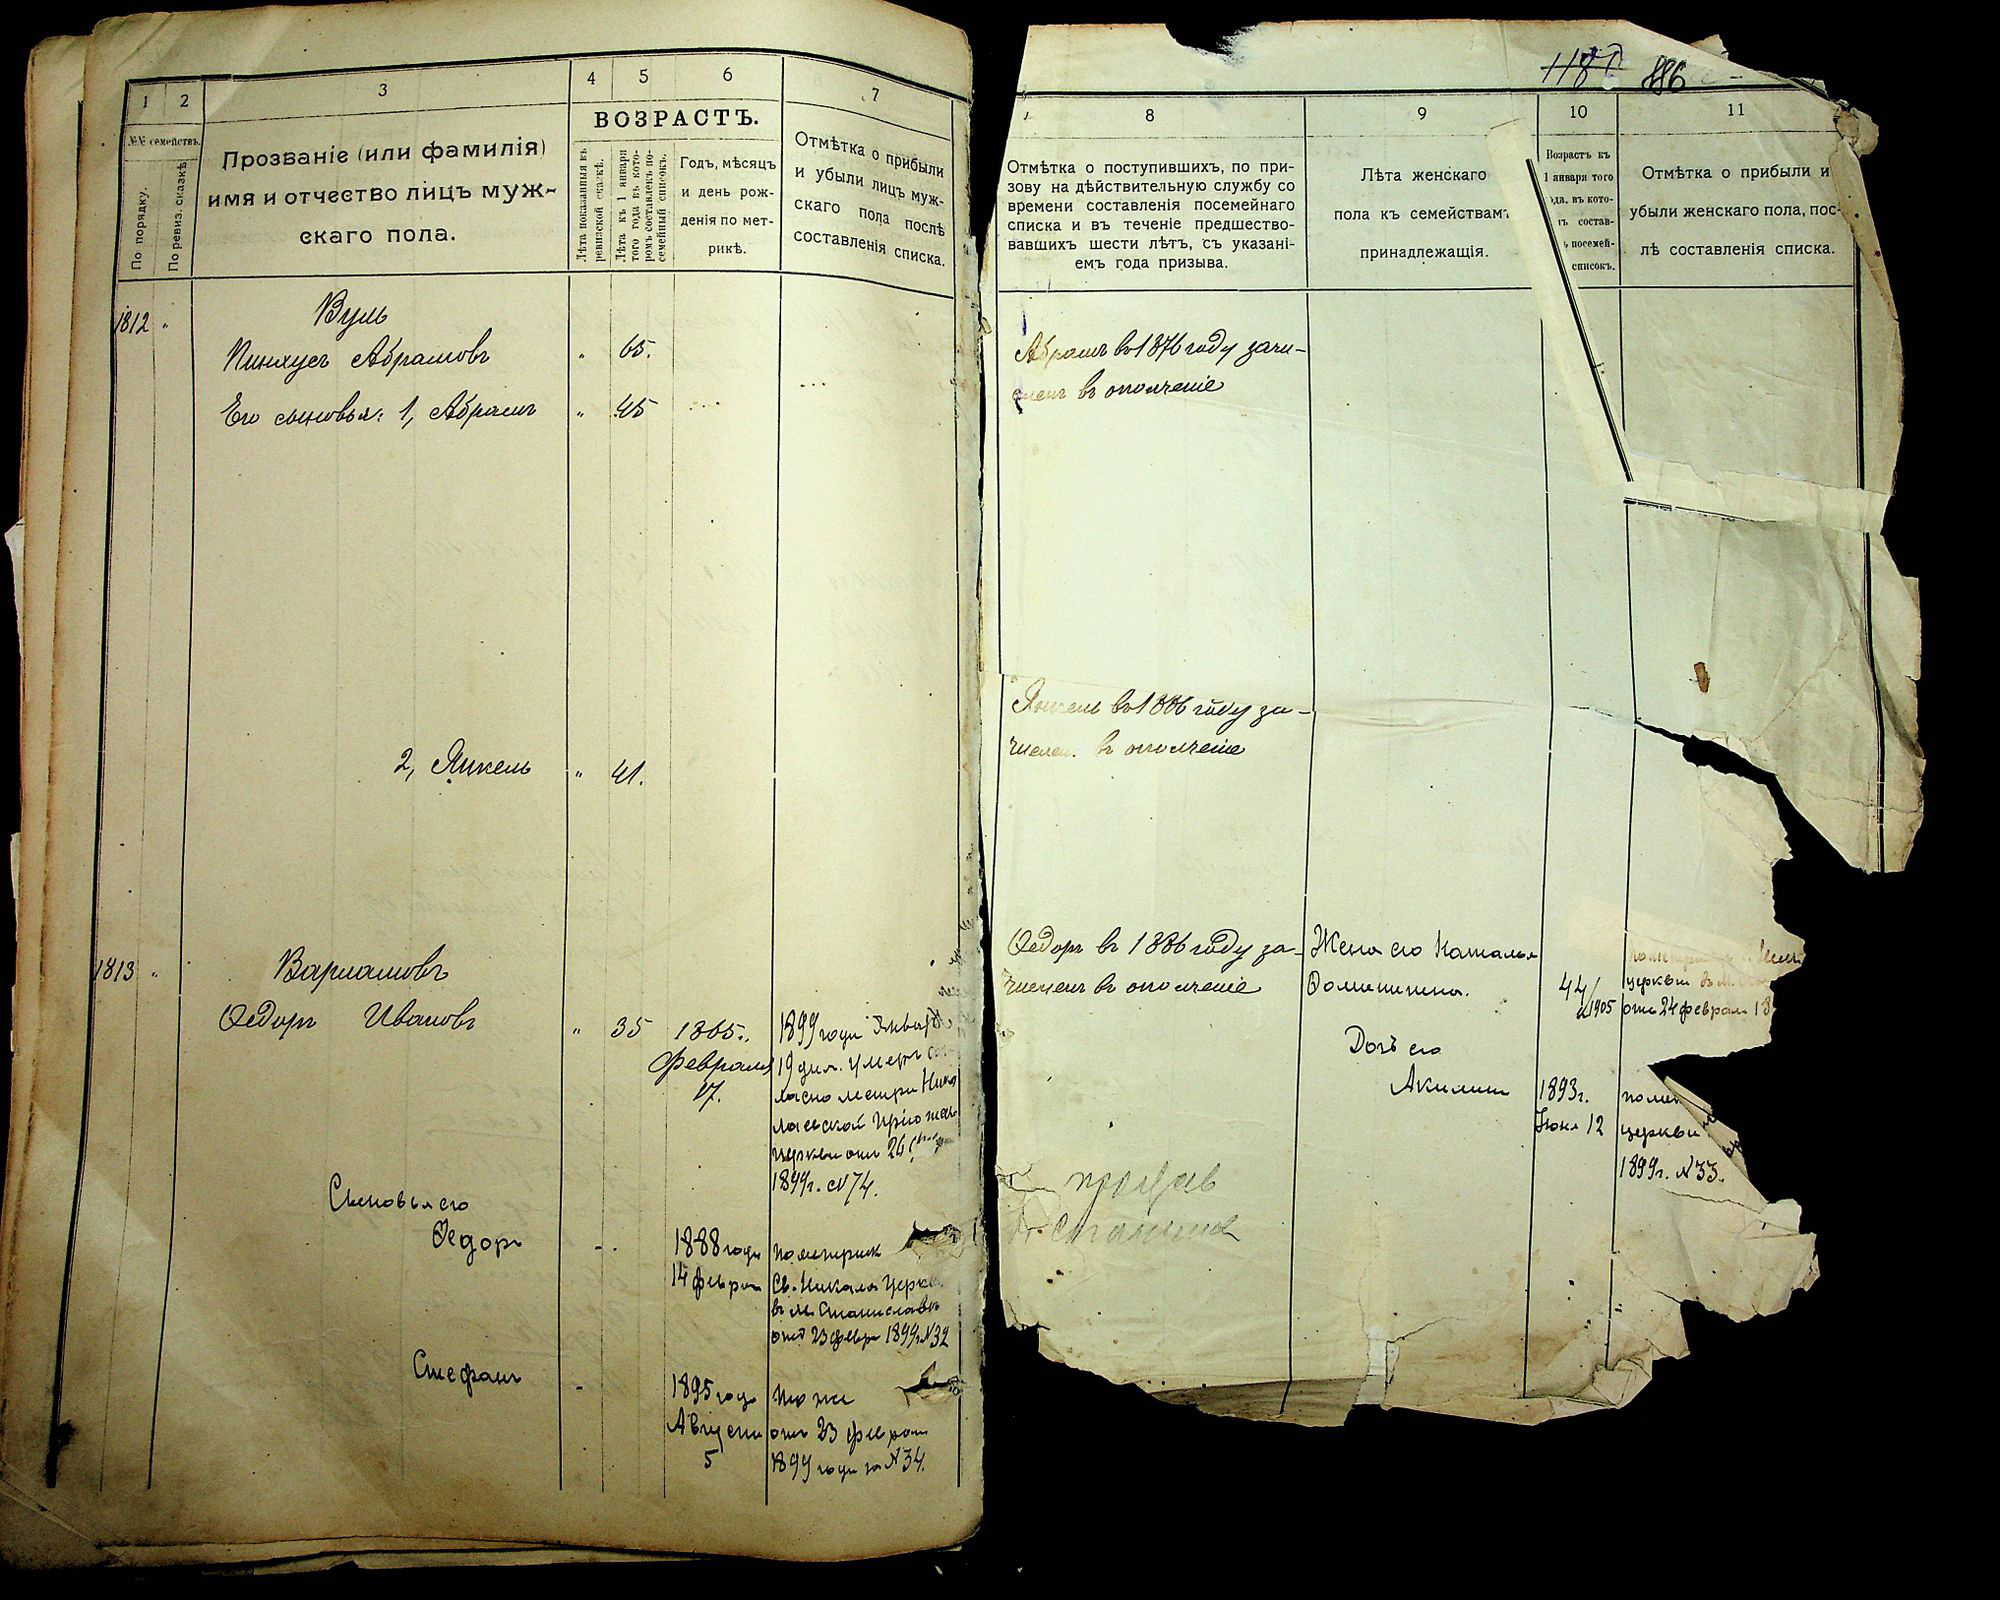 1 2 3 4 5 6 7
№№ семействъ.
По порядку.
По ревиз. сказкѣ.
Прозваніе (или фамилія)
имя и отчество лицъ муж-
скаго пола.
ВОЗРАСТЪ.
Лѣта показанныя въ
ревизской сказкѣ.
Лѣта къ 1 января
того года въ кото-
ромъ составлекъ по-
семейный списокъ.
Годъ, мѣсяцъ
и день рож-
денія по мет-
рикѣ.
Отмѣтка о прибыли
и убыли лицъ муж-
скаго пола послѣ
составленія списка.
1812 "
Вуль
Пинхусъ Абрамовъ " 65.
Его сыновья: 1, Абрамъ " 45
2, Янкель " 41.
1813 "
Варламовъ
Ѳедоръ Ивановъ " 35 1865г.
Февраля
17.
1899 года Января
19 дня. умеръ
ласно метри Нико
лаевской
церкви отъ 26
1899г. №74.
Сыновья его
Ѳедоръ
1888 года
14 февра
по метрик
Св. Никола Церк
въ м. Станиславѣ
отъ 23 февр 1899г №32
Стефанъ
1895 года
Августа
5
то же
отъ 23 февраля
1899 года за №34.
1187 886
8 9 10 11
Отмѣтка о поступившихъ, по при-
зову на дѣйствительную службу со
времени составленія посемейнаго
списка и въ теченіе предшество-
вавшихъ шести лѣтъ, съ указані-
емъ года призыва.
Лѣта женскаго
пола къ семействамъ
принадлежащія.
Возрастъ къ
1 января того
да, въ кото-
ъ состав-
ъ посемей-
списокъ.
Отмѣтка о прибыли и
убыли женскаго пола, пос-
лѣ составленія списка.
Абрамъ въ 1876 году зачи-
сленъ въ ополченіе
Янкель въ 1886 году за-
числен. въ ополченіе
Ѳедоръ въ 1886 году за-
численъ въ ополченіе
Жена его Наталья
Фоминична.
44/
1905
церкви въ м.
отъ 24 феврал 18
Дочь его
Акилина
1893г.
Іюня 12
церкви
1899г. №33.